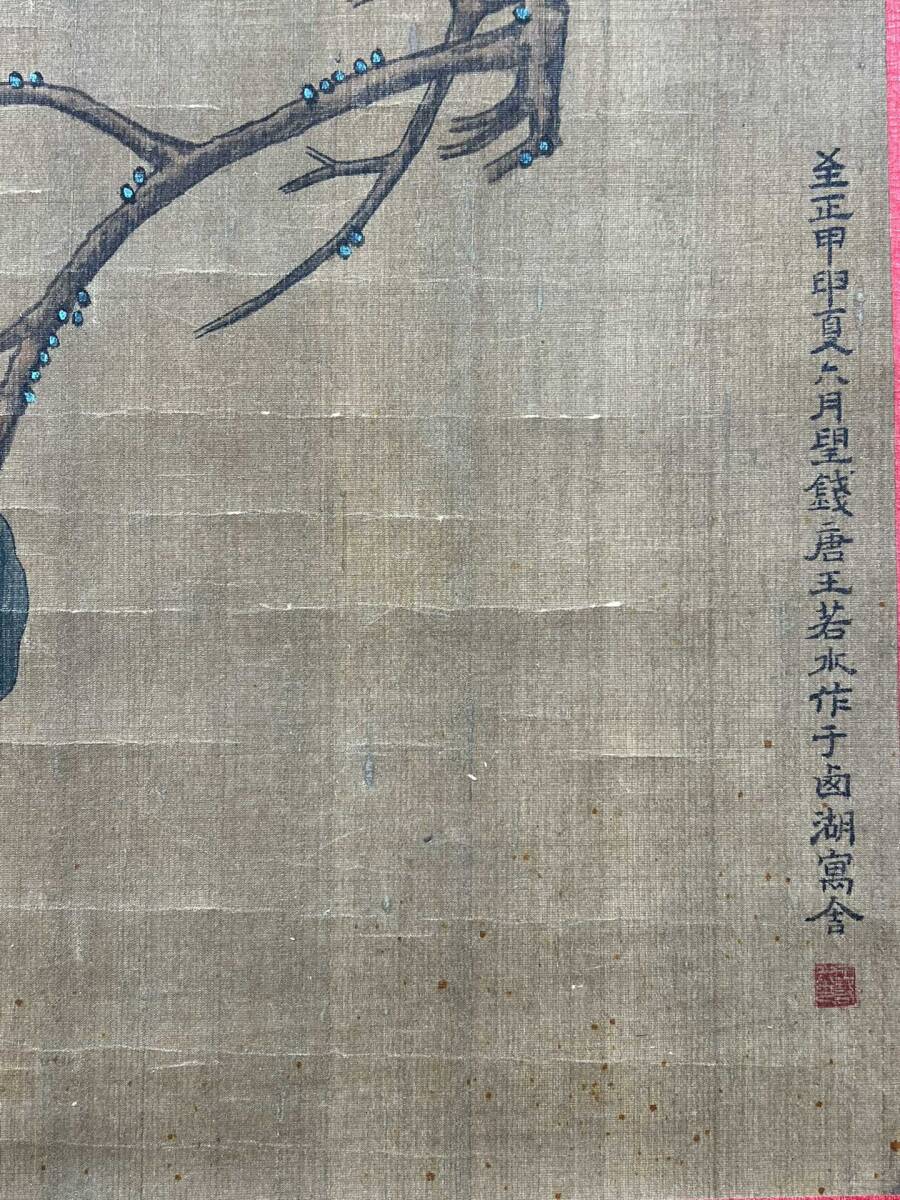 至正甲申夏六月望錢唐王若水作于西湖寓舍